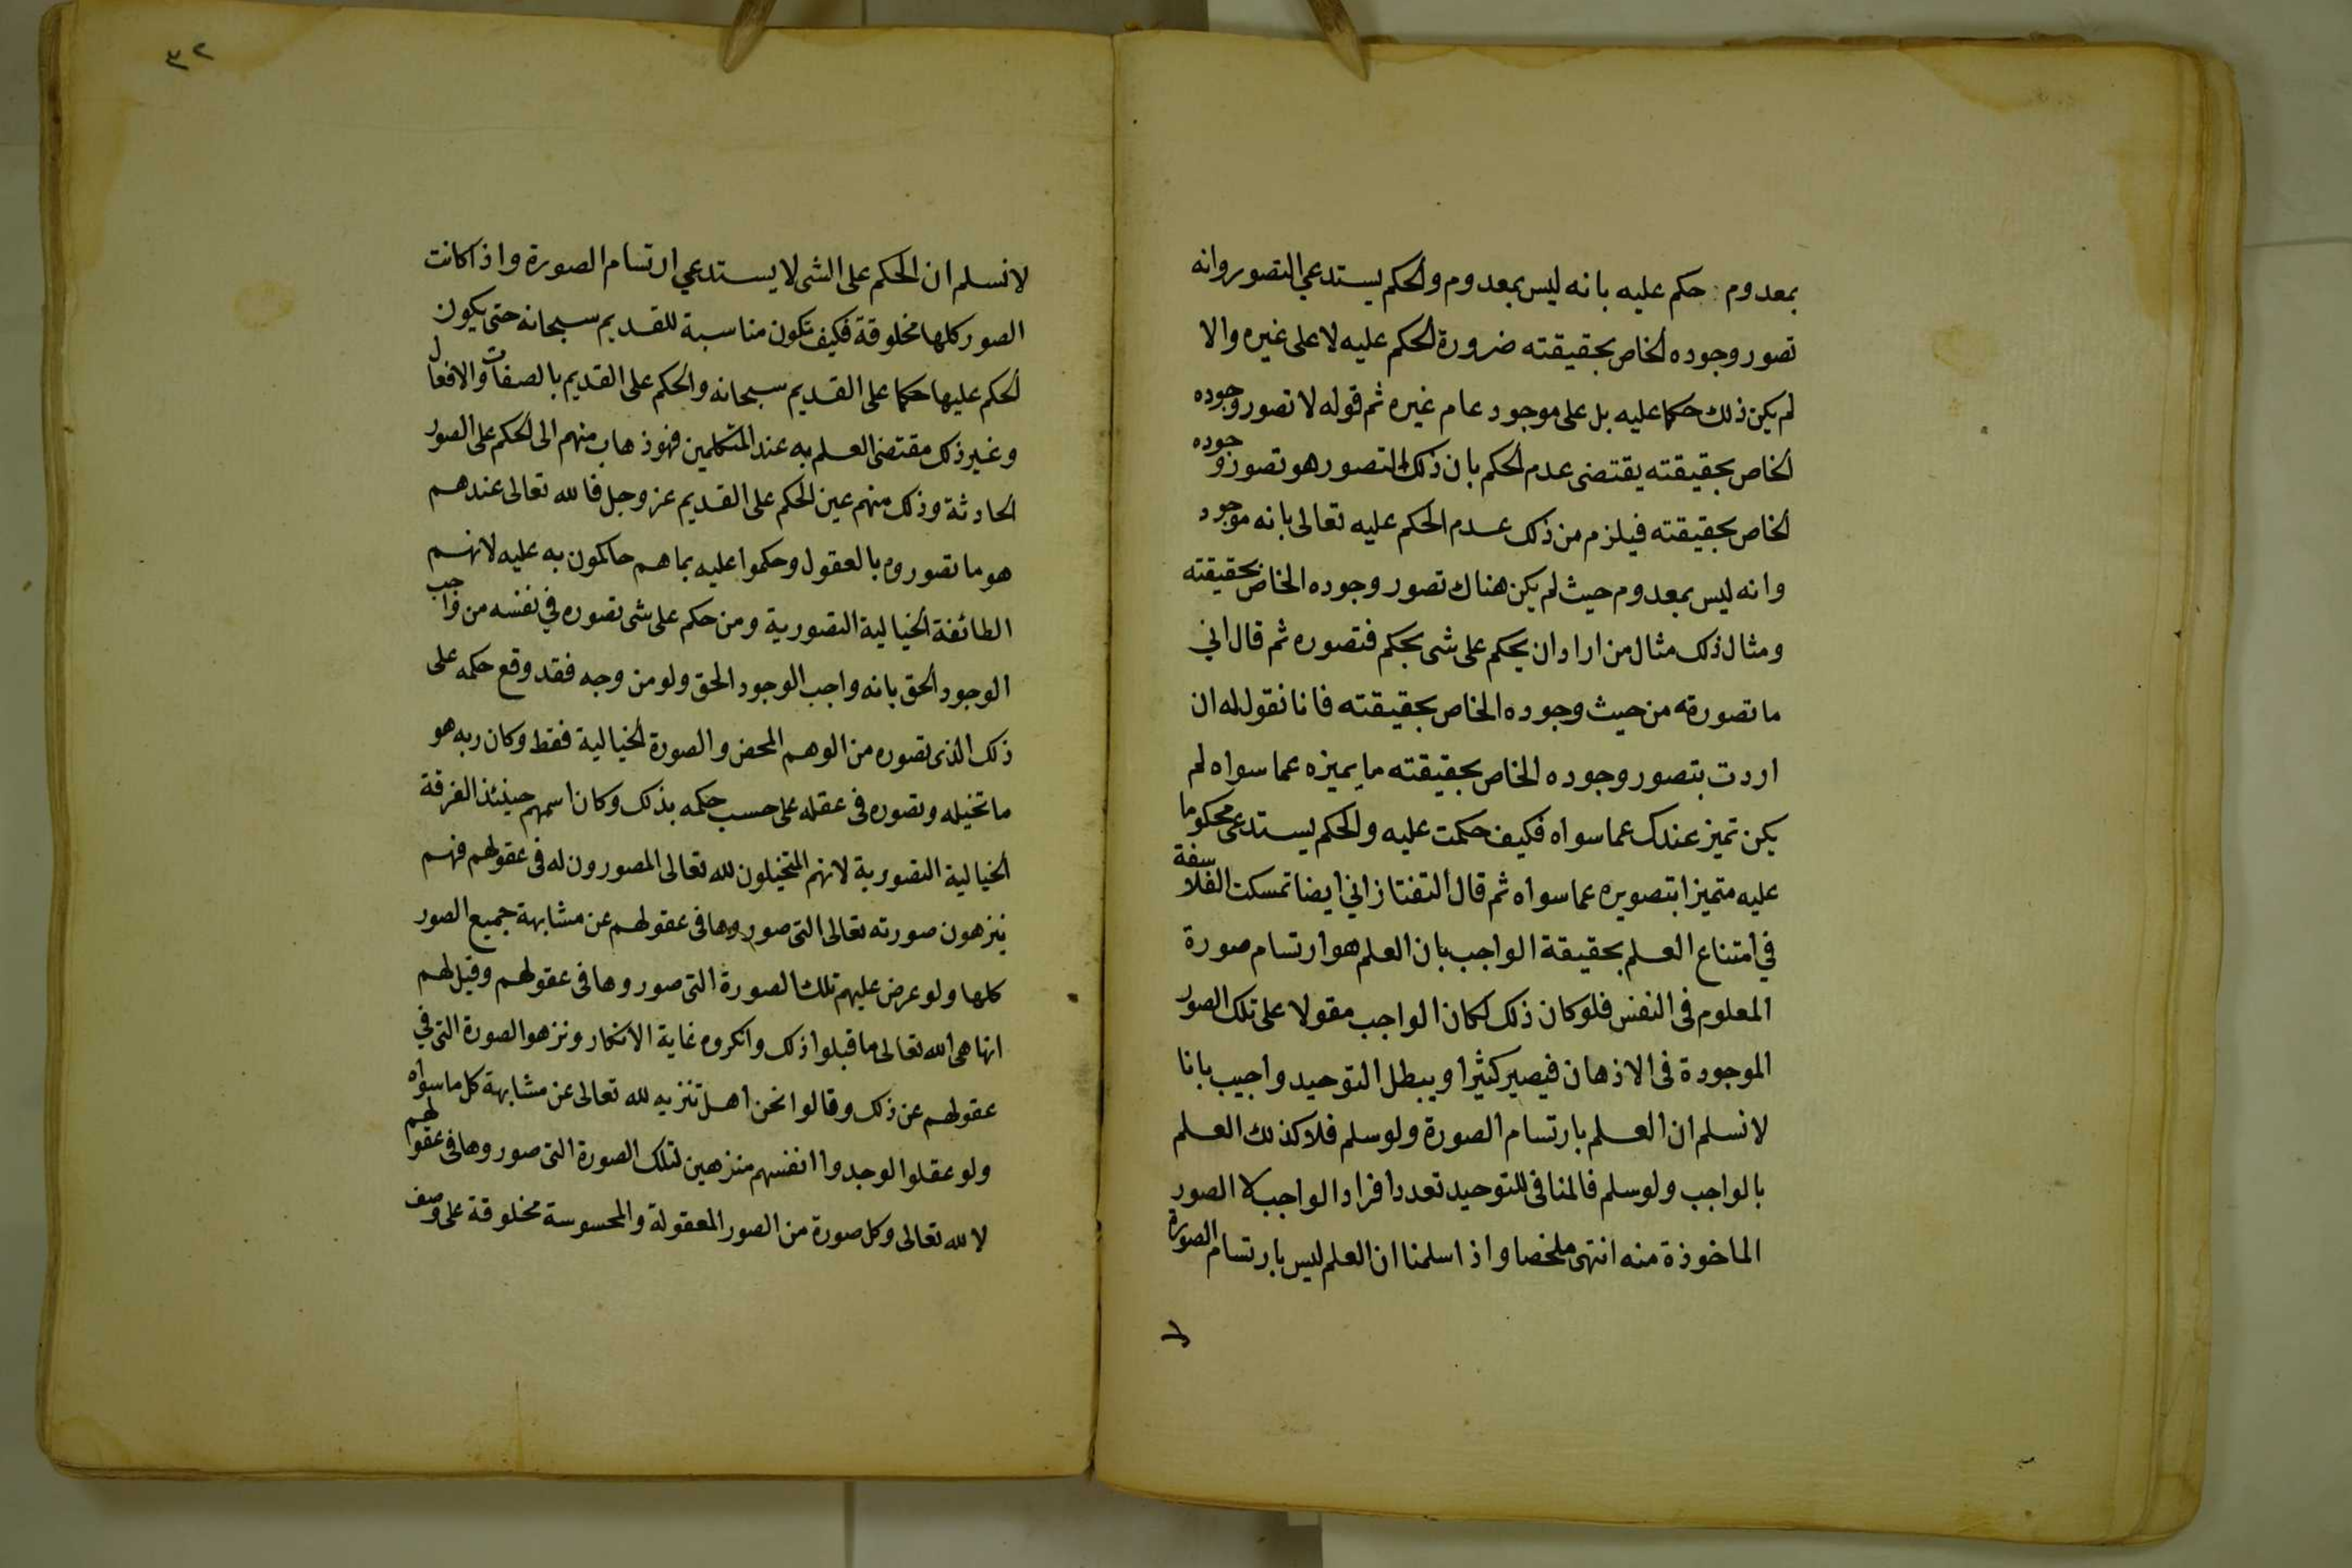 بمعدوم حكم عليه بانه ليس بمعدوم والحكم يستدعي التصور وانه
تصور وجوده الخاص بحقيقته ضرورة الحكم عليه لا على غيره والا
لم يكن ذلك حكما عليه بل على موجود عام غيره ثم قوله لا تصور وجوده
الخاص بحقيقته يقتضى عدم الحكم بان ذلك المتصور هو تصور وجوده
الخاص بحقيقته فيلزم من ذلك عدم الحكم عليه تعالى بانه موجود
وانه ليس بمعدوم حيث لم يكن هناك تصور وجوده الخاص بحقيقته
ومثال ذلك مثال من اراد ان يحكم على شى بحكم فتصوره ثم قال اني
ما تصورته من حيث وجوده الخاص بحقيقته فانا نقول له ان
اردت بتصور وجوده الخاص بحقيقته ما يميزه عما سواه لم
يكن تميز عندك عما سواه فكيف حكمت عليه والحكم يستدعى محكوما
عليه متميزا بتصويره عما سواه ثم قال التفتازاني ايضا تمسكت الفلاسفة
في امتناع العلم بحقيقة الواجب بان العلم هو ارتسام صورة
المعلوم فى النفس فلو كان ذلك لكان الواجب مقولا على تلك الصور
الموجودة فى الاذهان فيصير كثيرا ويبطل التوحيد واجيب بانا
لا نسلم ان العلم بارتسام الصورة ولو سلم فلا كذلك العلم
بالواجب ولو سلم فالمنافى للتوحيد تعدد افراد الواجب لا الصور
الماخوذة منه انتهى ملخصا واذا سلمنا ان العلم ليس بارتسام الصورة
لا
٣٢
لا نسلم ان الحكم على الشى لا يستدعي ارتسام الصورة واذا كانت
الصور كلها مخلوقة فكيف تكون مناسبة للقديم سبحانه حتى يكون
الحكم عليها حكما على القديم سبحانه والحكم على القديم بالصفات والافعال
وغير ذلك مقتضى العلم به عند المتكلمين فهو ذهاب منهم الى الحكم على الصور
الحادثة وذلك منهم عين الحكم على القديم عز وجل فالله تعالى عندهم
هو ما تصوروه بالعقول وحكموا عليه بما هم حاكمون به عليه لانهم
الطائفة الخيالية التصورية ومن حكم على شى تصوره في نفسه من واجب
الوجود الحق بانه واجب الوجود الحق ولو من وجه فقد وقع حكمه على
ذلك الذى تصوره من الوهم المحض والصورة الخيالية فقط وكان ربه هو
ما تخيله وتصوره فى عقله على حسب حكمه بذلك وكان اسمهم حينئذ الفرقة
الخيالية التصورية لانهم المتخيلون لله تعالى المصورون له فى عقولهم فهم
ينزهون صورته تعالى التى صوروها فى عقولهم عن مشابهة جميع الصور
كلها ولو عرض عليهم تلك الصورة التى صوروها فى عقولهم وقيل لهم
انها هى الله تعالى ما قبلوا ذلك وانكروه غاية الانكار ونزهوا الصورة التى في
عقولهم عن ذلك وقالوا نحن اهل تنزيه لله تعالى عن مشابهة كل ما سواه
ولو عقلوا لوجدوا انفسهم منزهين لتلك الصورة التى صوروها فى عقولهم
لا لله تعالى وكل صورة من الصور المعقولة والمحسوسة مخلوقة على وصف